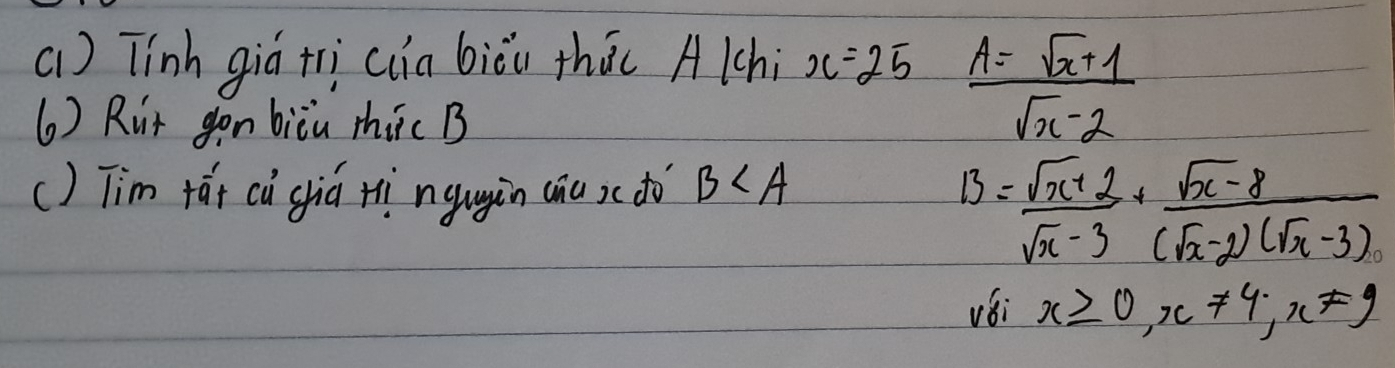 a) Tính giá trị của biểu thức A khi x=25 A = (√x+1)/(√x-2)
b) Rút gọn biểu thức B
c) Tìm tất cả giá trị nguyên của x để B < A B = (√x+2)/(√x-3) + (√x-8)/((√x-2)(√x-3))
với x ≥ 0, x ≠ 4; x ≠ 9